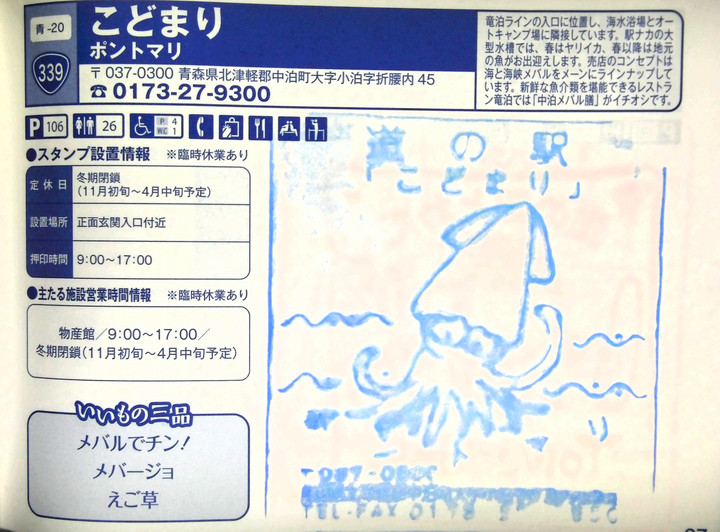 青-20
こどまり
ポントマリ
339
〒037-0300 青森県北津軽郡中泊町大字小泊字折腰内45
☎0173-27-9300
竜泊ラインの入口に位置し、海水浴場とオー
トキャンプ場に隣接しています。駅ナカの大
型水槽では、春はヤリイカ、春以降は地元
の魚がお出迎えします。売店のコンセプトは
海と海峡メバルをメーンにラインナップして
います。新鮮な魚介類を堪能できるレストラ
ン竜泊では「中泊メバル膳」がイチオシです。
P 106
26
P 4
WC 1
●スタンプ設置情報 ※臨時休業あり
定休日 冬期閉鎖
(11月初旬〜4月中旬予定)
設置場所 正面玄関入口付近
押印時間 9:00〜17:00
●主たる施設営業時間情報 ※臨時休業あり
物産館/9:00〜17:00/
冬期閉鎖(11月初旬〜4月中旬予定)
いいもの三品
メバルでチン!
メバージョ
えご草
道の駅
「こどまり」